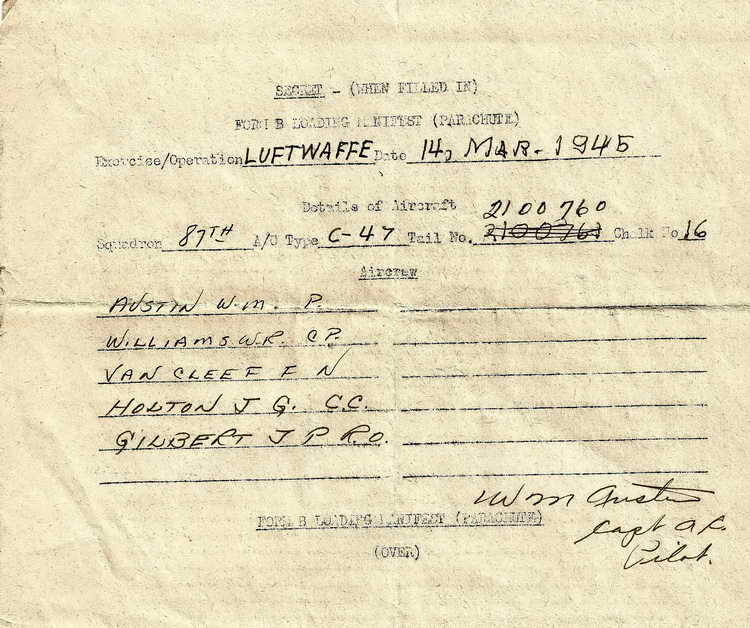 SECRET - (WHEN FILLED IN)
FORM B LOADING MANIFEST (PARACHUTE)
Exercise/Operation LUFTWAFFE Date 14, MAR-1945
Details of Aircraft
2100760
Squadron 87TH A/C Type C-47 Tail No. 2100761 Chalk No 16
Aircrew
AUSTIN W.M. P.
WILLIAMS W.R. C.P.
VAN CLEEF F N
HOLTON J G. C.C.
GILBERT J P R.O.
WM Austin
FORM B LOADING MANIFEST (PARACHUTE)
Capt A.C.
(OVER)
Pilot.